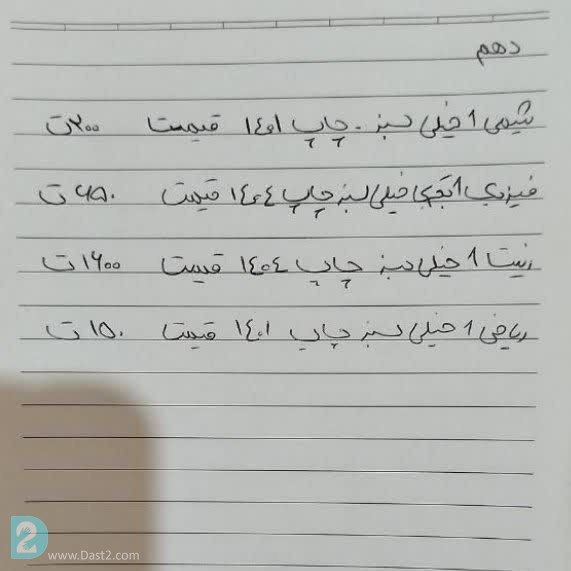 دهم
شیمی ۱ خیلی سبز . چاپ ۱۴۰۱ قیمت ۲۰۰ ت
فیزیک ۱ تجربی خیلی سبز چاپ ۱۴۰۴ قیمت ۶۵۰ ت
زیست ۱ خیلی سبز چاپ ۱۴۰۴ قیمت ۱۶۰۰ ت
ریاضی ۱ خیلی سبز چاپ ۱۴۰۱ قیمت ۱۵۰ ت
www.Dast2.com